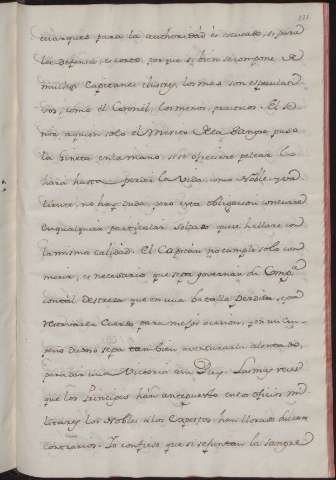 aunque para la authoridad es escusado, si para
la defensa es corto, porque si bien se compone de
muchos Capitanes ilustres, los mas son especulati
vos, como el Coronel, los menos, practicos. El Se
ñor a quien solo el merito de la sangre puso
la gineta en la mano, si se ofreciere pelear lo
hará hasta perder la vida, como Noble, y va
liente, no hay duda, pero esta obligacion concurre
en qualquiera particular soldado que se hallare con
la misma calidad. El Capitán no cumple solo con
morir, es necesario que sepa governar su Compª
con tal destreza que en una batalla perdida, sepa
retirar la a cuerpo, para mejor ocasion, y en un em
peño dudoso sepa tan bien aventurarla alentado,
para dar una Victoria a su Rey. Las mas veces
que los Principes han antepuesto en los oficios mi
litares los Nobles a los expertos han llorado sucesos
contrarios. Yo confieso que si se juntan la sangre